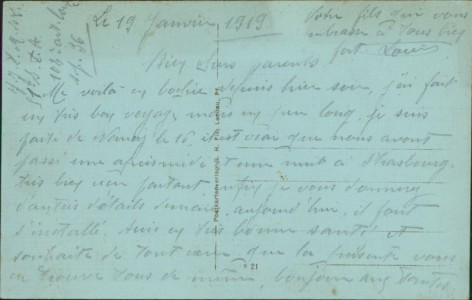 Le 19 Janvier 1919
Votre fils qui vous
embrasse à tous bien
fort. Louis
Bien chers parents
Me voilà en bochie depuis hier soir, j'ai fait
un très bon voyage, mais un peu long, je suis
parti de Nancy le 16, il est vrai que nous avons
passé une après midi et une nuit à Strasbourg.
très bien partout, enfin je vous donnerai
d'autres détails demain, aujourd'hui, il faut
s'installé. Suis en très bonne santé et
souhaite de tout cœur que la présente vous
en trouve tous de même, bonjour aux tantes.
21